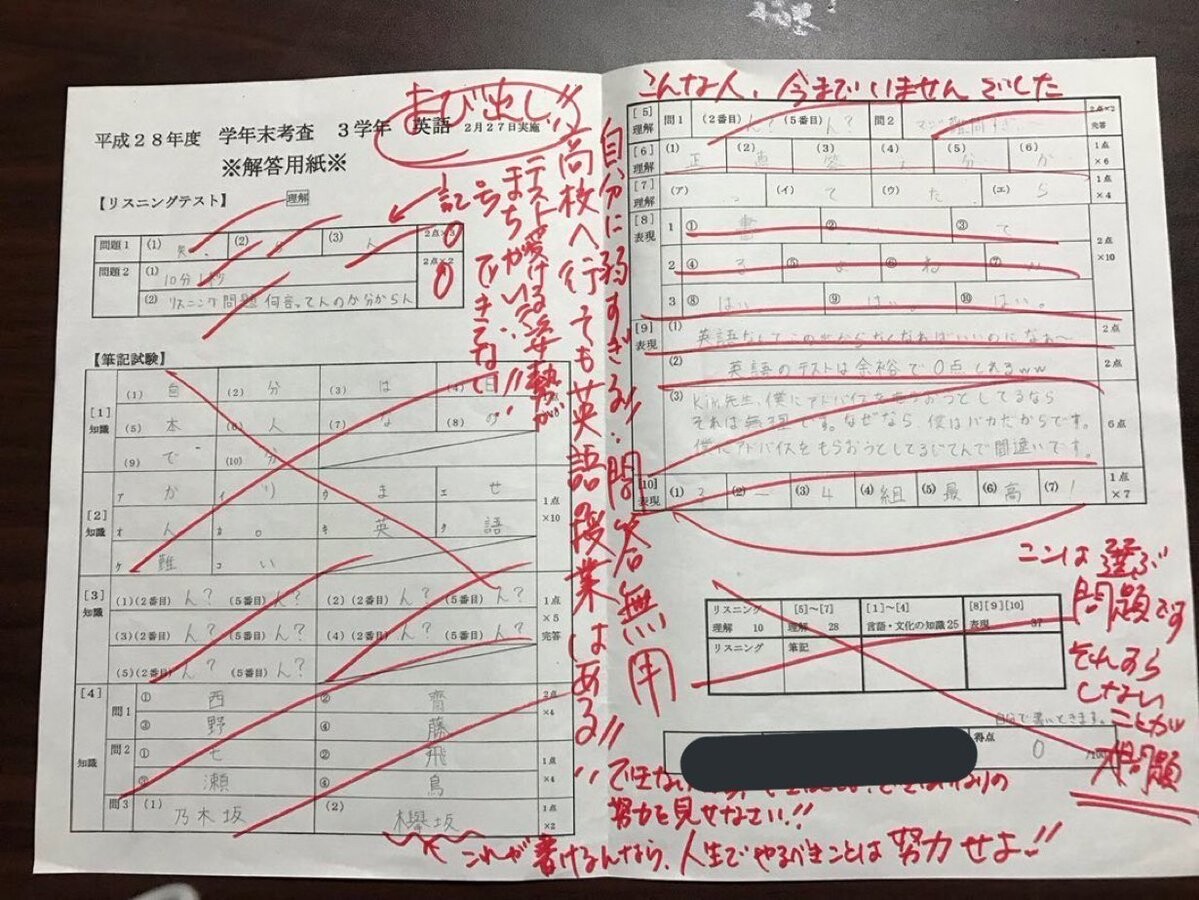 よび出し!!
平成28年度 学年末考査 3学年 英語 2月27日実施
※解答用紙※
【リスニングテスト】 理解
記号 0
テストを受ける姿勢が
まちがい!!
できてない!!
問題1 (1) 笑、 (2) (3) ん 2点×3
0
問題2 (1) 10分 1秒 2点×2
(2) リスニング問題何言ってんのか分からん
0
【筆記試験】
[1] 知識
(1) 自 (2) 分 (3) は (4) 日
(5) 本 (6) 人 (7) な (8) の
(9) で (10) 分
[2] 知識 1点×10
ア か イ り ウ ま エ せ
オ ん カ 。 キ 英 ク 語
ケ 難 コ い
[3] 知識 1点×5 完答
(1)(2番目) ん? (5番目) ん? (2)(2番目) ん? (5番目) ん?
(3)(2番目) ん? (5番目) ん? (4)(2番目) ん? (5番目) ん?
(5)(2番目) ん? (5番目) ん?
[4] 知識
問1 ① 西 ② 齋 2点×4
③ 野 ④ 藤
問2 ① 七 ② 飛 1点×4
③ 瀬 ④ 鳥
問3 (1) 乃木坂 (2) 欅坂 1点×2
これが書けるんなら、人生でやるべきことは努力せよ!!
高校へ行っても英語授業はある!!
自分に弱すぎる!!問答無用
こんな人、今までいませんでした
[5] 理解 問1 (2番目) ん? (5番目) ん? 問2 マジ難問すぎ、〜 2点×2 完答
[6] 理解 (1) 正 (2) 直 (3) 笑 (4) (5) 分 (6) か 1点×6
[7] 理解 (ア) っ (イ) て (ウ) た (エ) ら 1点×4
[8] 表現 2点×10
1 ① 書 ② ③ て
2 ④ る ⑤ よ ⑥ ね ⑦ い
3 ⑧ はい ⑨ はい ⑩ はい。
[9] 表現
(1) 英語なんてこの世からなくなればいいのになぁ〜 2点
(2) 英語のテストは余裕で0点とれるww 2点
(3) Kim先生、僕にアドバイスをもらおうとしてるなら
それは無理です。なぜなら 僕はバカだからです。
僕にアドバイスをもらおうとしてるじてんで間違いです。
6点
[10] 表現 (1) 3 (2) ー (3) 4 (4) 組 (5) 最 (6) 高 (7) ! 1点×7
ここは選ぶ
問題です
それすら
しない
ことが
大問題
リスニング 理解 10 [5]〜[7] 理解 28 [1]〜[4] 言語・文化の知識25 [8][9][10] 表現 37
リスニング 筆記
自分で書いときます。
得点 0 /100
できない
なりの
努力を見せなさい!!